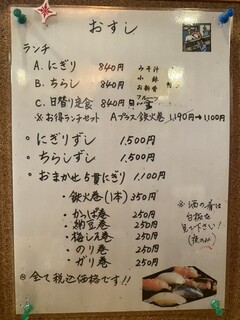 おすし
ランチ
A. にぎり 840円 みそ汁
B. ちらし 840円 小鉢
お新香
C. 日替り定食 840円 フルーツ
※お得ランチセット Aプラス鉄火巻 1,190円→1,100円
• にぎりずし 1,500円
• ちらしずし 1,500円
• おまかせ5貫にぎり 1,100円
• 鉄火巻(1本) 350円
• かっぱ巻 250円
• 納豆巻 250円
• 梅しそ巻 250円
• のり巻 250円
• ガリ巻 250円
※酒の肴は
白板を
見て下さい!
(夜のみ)
全て税込価格です!!